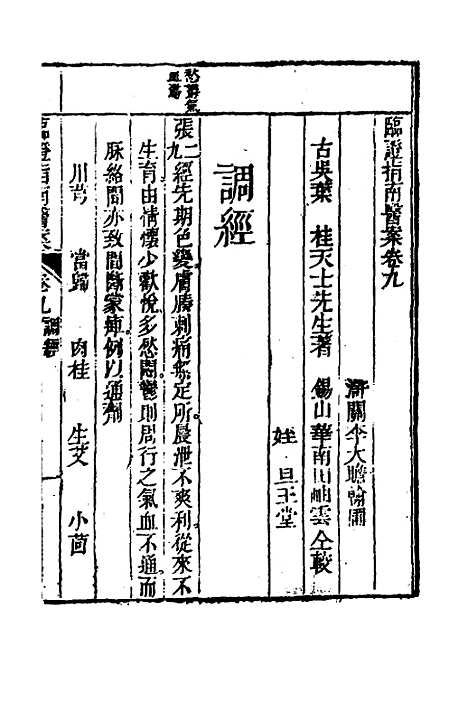 臨證指南醫案卷九
滸關李大瞻翰圃
古吳葉　桂天士先生著　錫山華南田岫雲仝較
姪　旦玉堂
調經
愁鬱氣
血滯
張二九經先期色變膚腠刺痛無定所晨泄不爽利從來不
生育由情懷少歡悅多愁悶鬱則周行之氣血不通而
脉絡間亦致間斷蒙痺例以通劑
川芎　當歸　肉桂　生艾　小茴
臨證指南醫案　卷九　調經